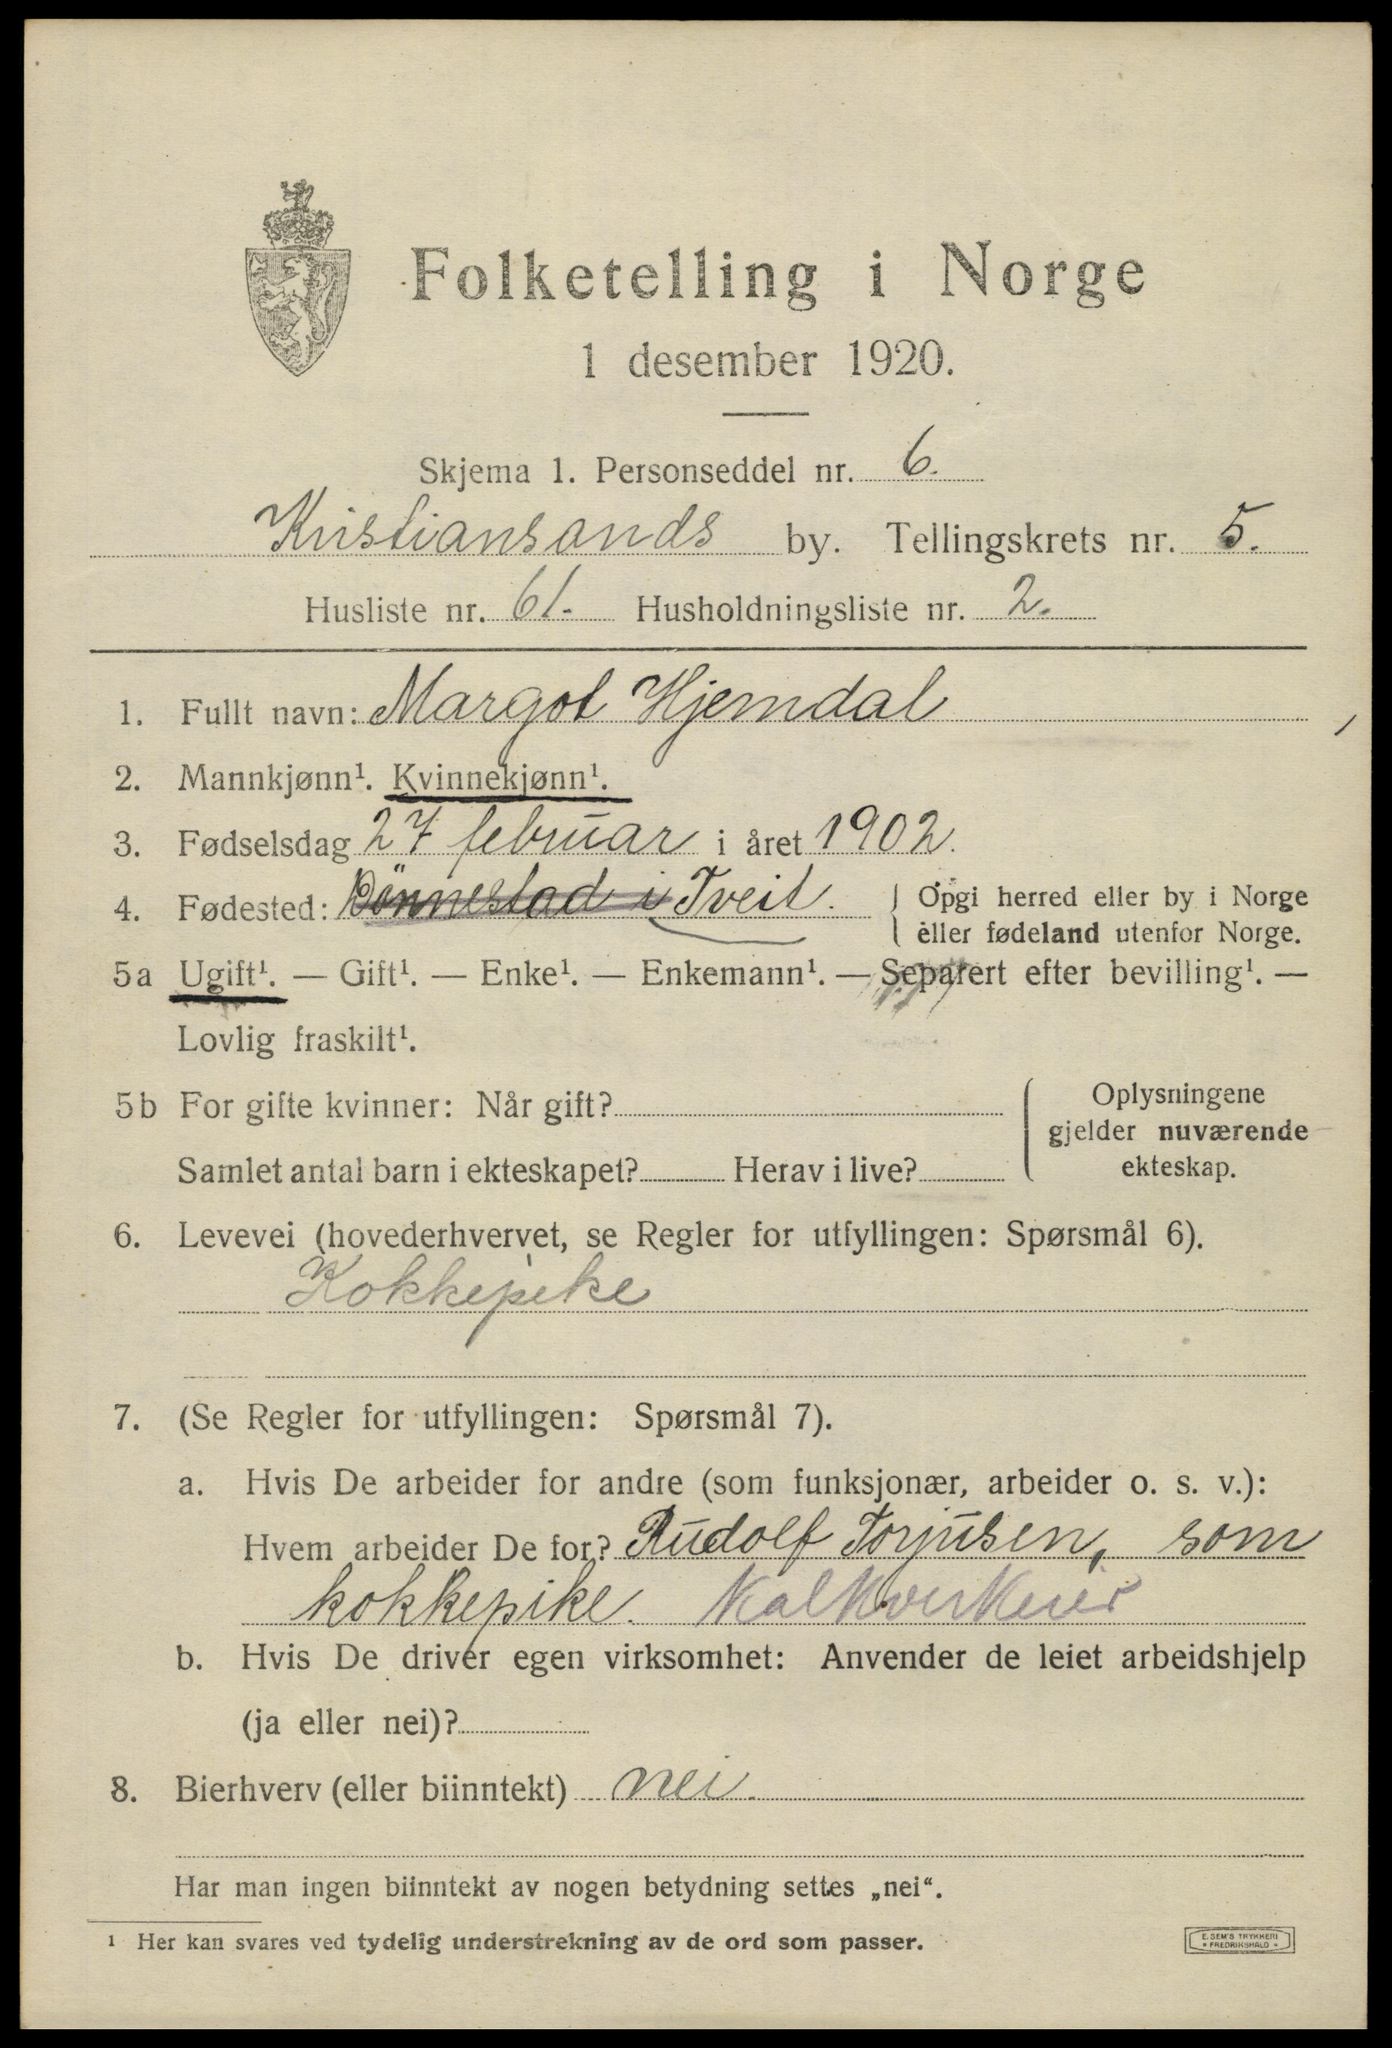 Folketelling i Norge
1 desember 1920.
Skjema 1. Personseddel nr. 6.
Kristiansands by. Tellingskrets nr. 5.
Husliste nr. 61. Husholdningsliste nr. 2.
1. Fullt navn: Margot Hjemdal
2. Mannkjønn¹. Kvinnekjønn¹.
3. Fødselsdag 27 februar i året 1902.
4. Fødested: Dönnestad i Tveit. Opgi herred eller by i Norge
eller fødeland utenfor Norge.
5a Ugift¹. — Gift¹. — Enke¹. — Enkemann¹. — Separert efter bevilling¹. —
Lovlig fraskilt¹.
5b For gifte kvinner: Når gift? Oplysningene
gjelder nuværende
Samlet antal barn i ekteskapet? Herav i live? ekteskap.
6. Levevei (hovederhvervet, se Regler for utfyllingen: Spørsmål 6).
Kokkepike
7. (Se Regler for utfyllingen: Spørsmål 7).
a. Hvis De arbeider for andre (som funksjonær, arbeider o. s. v.):
Hvem arbeider De for? Rudolf Torjusen, som
kokkepike. Kalkverkeier
b. Hvis De driver egen virksomhet: Anvender de leiet arbeidshjelp
(ja eller nei)?
8. Bierhverv (eller biinntekt) nei.
Har man ingen biinntekt av nogen betydning settes „nei“.
¹ Her kan svares ved tydelig understrekning av de ord som passer.
E. SEM'S TRYKKERI
FREDRIKSHALD